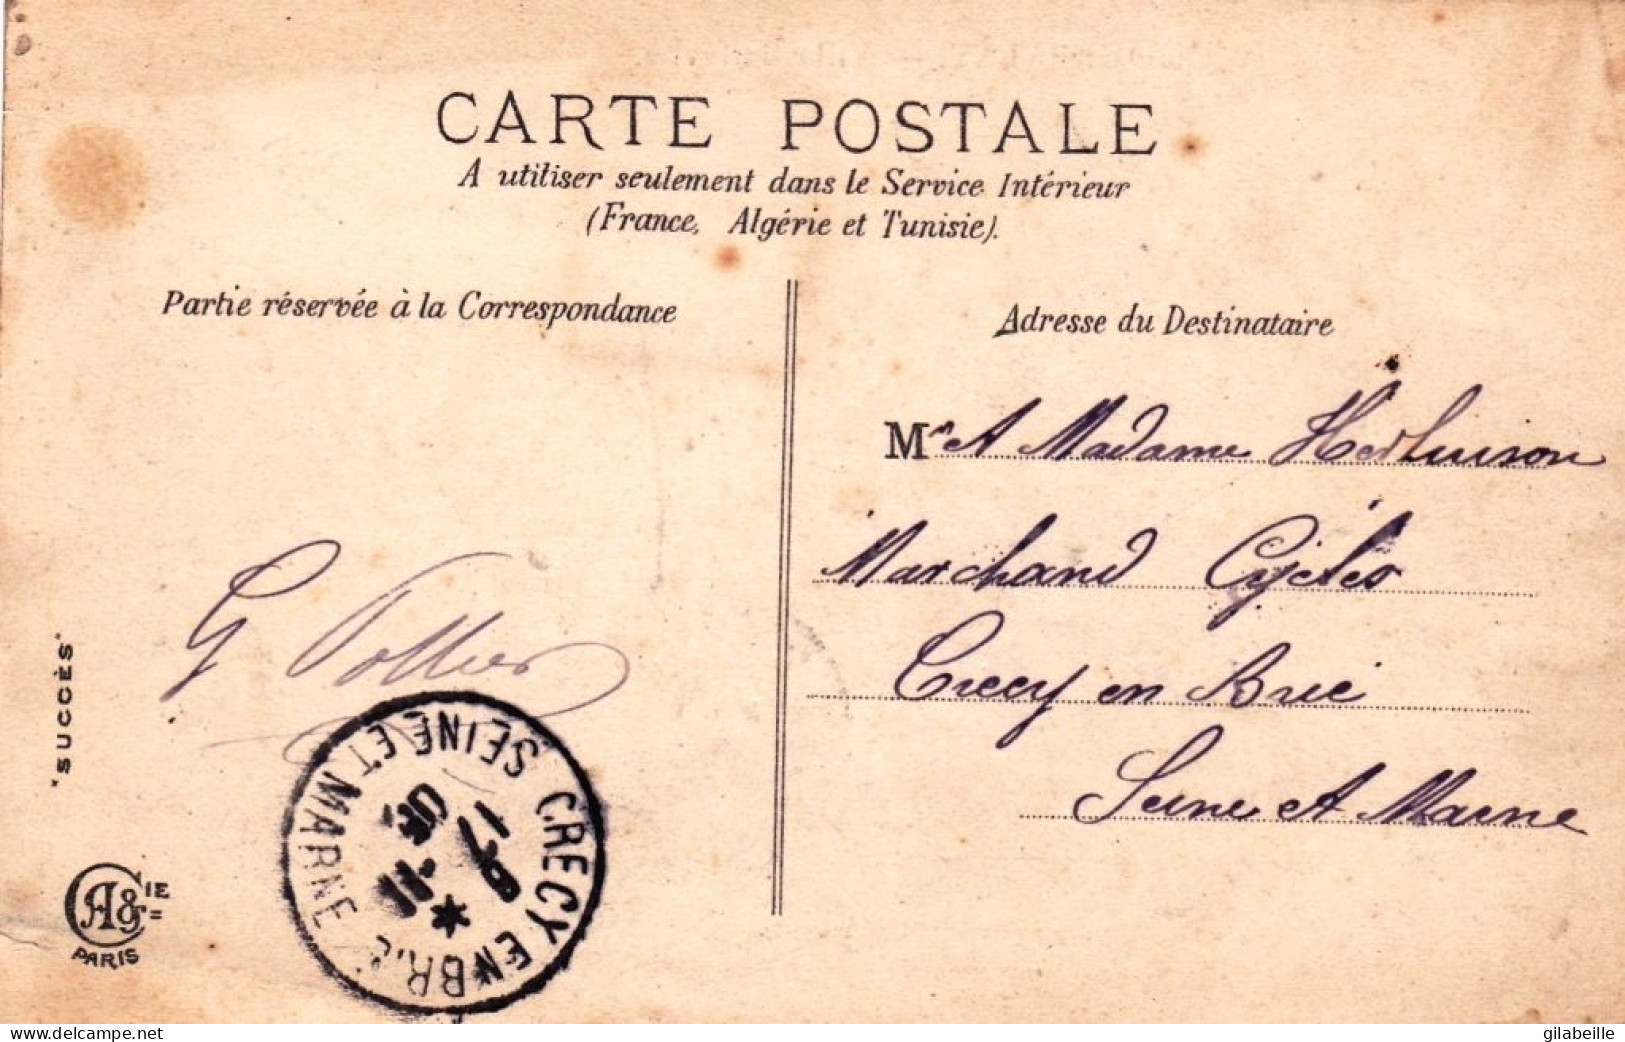 CARTE POSTALE
A utiliser seulement dans le Service Intérieur
(France, Algérie et Tunisie).
Partie réservée à la Correspondance
Adresse du Destinataire
M A Madame Herluison
Marchand Cycles
Crecy en Brie
Seine et Marne
G
"SUCCÈS"
A&CIE
PARIS
CRECY EN BRIE
SEINE ET MARNE
www.delcampe.net
gilabeille